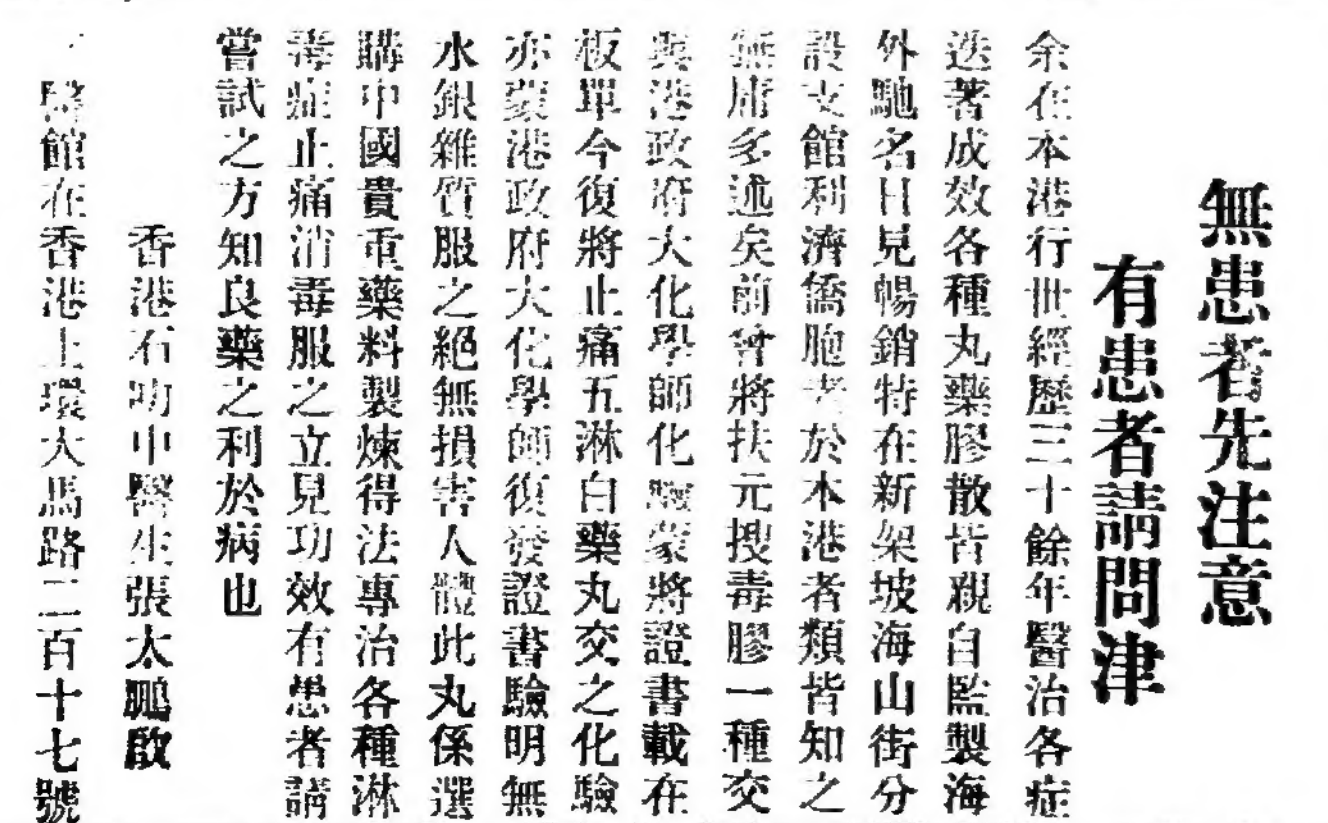 無患者先注意
有患者請問津
余在本港行世經歷三十餘年醫治各症
迭著成效各種丸藥膠散皆親自監製海
外馳名日見暢銷特在新架坡海山街分
設支館利濟僑胞 於本港者類皆知之
無庸多述矣前曾將扶元搜毒膠一種交
與港政府大化學師化驗蒙將證書載在
板單今復將止痛五淋白藥丸交之化驗
亦蒙港政府大化學師復發證書驗明無
水銀雜質服之絕無損害人體此丸係選
購中國貴重藥料製煉得法專治各種淋
毒症止痛消毒服之立見功效有患者請
嘗試之方知良藥之利於病也
香港石叻中醫生張太鵬啟
醫館在香港上環大馬路二百十七號